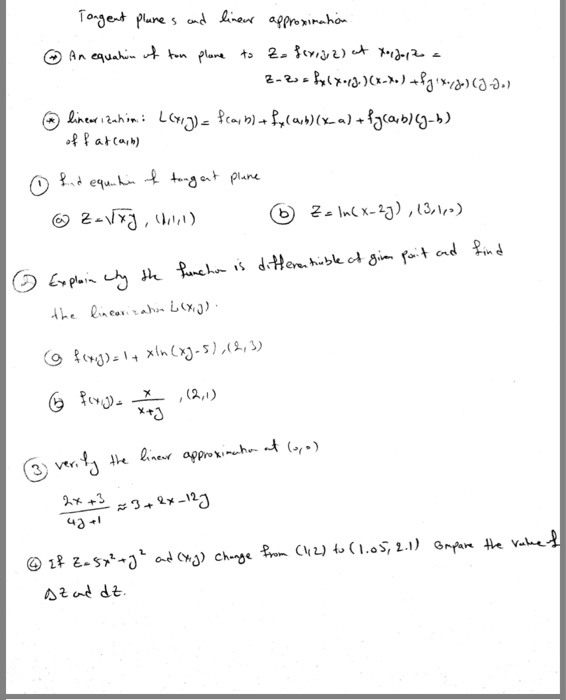 Tangent planes and linear approximation
* An equation of tan plane to z = f(x,y,z) at x₀,y₀,z₀ =
z-z₀ = fx(x₀,y₀)(x-x₀) + fy(x₀,y₀)(y-y₀)
* linearization: L(x,y) = f(a,b) + fx(a,b)(x-a) + fy(a,b)(y-b)
of f at (a,b)
① find equation of tangent plane
ⓐ z = √xy , (1,1,1) ⓑ z = ln(x-2y) , (3,1,0)
② Explain why the function is differentiable at given point and find
the linearization L(x,y).
ⓐ f(x,y) = 1 + x ln(xy-5) , (2,3)
ⓑ f(x,y) = x/(x+y) , (2,1)
③ verify the linear approximation at (0,0)
(2x+3)/(4y+1) ≈ 3 + 2x - 12y
④ If z = 5x² + y² and (x,y) change from (1,2) to (1.05, 2.1) compare the value of
Δz and dz.